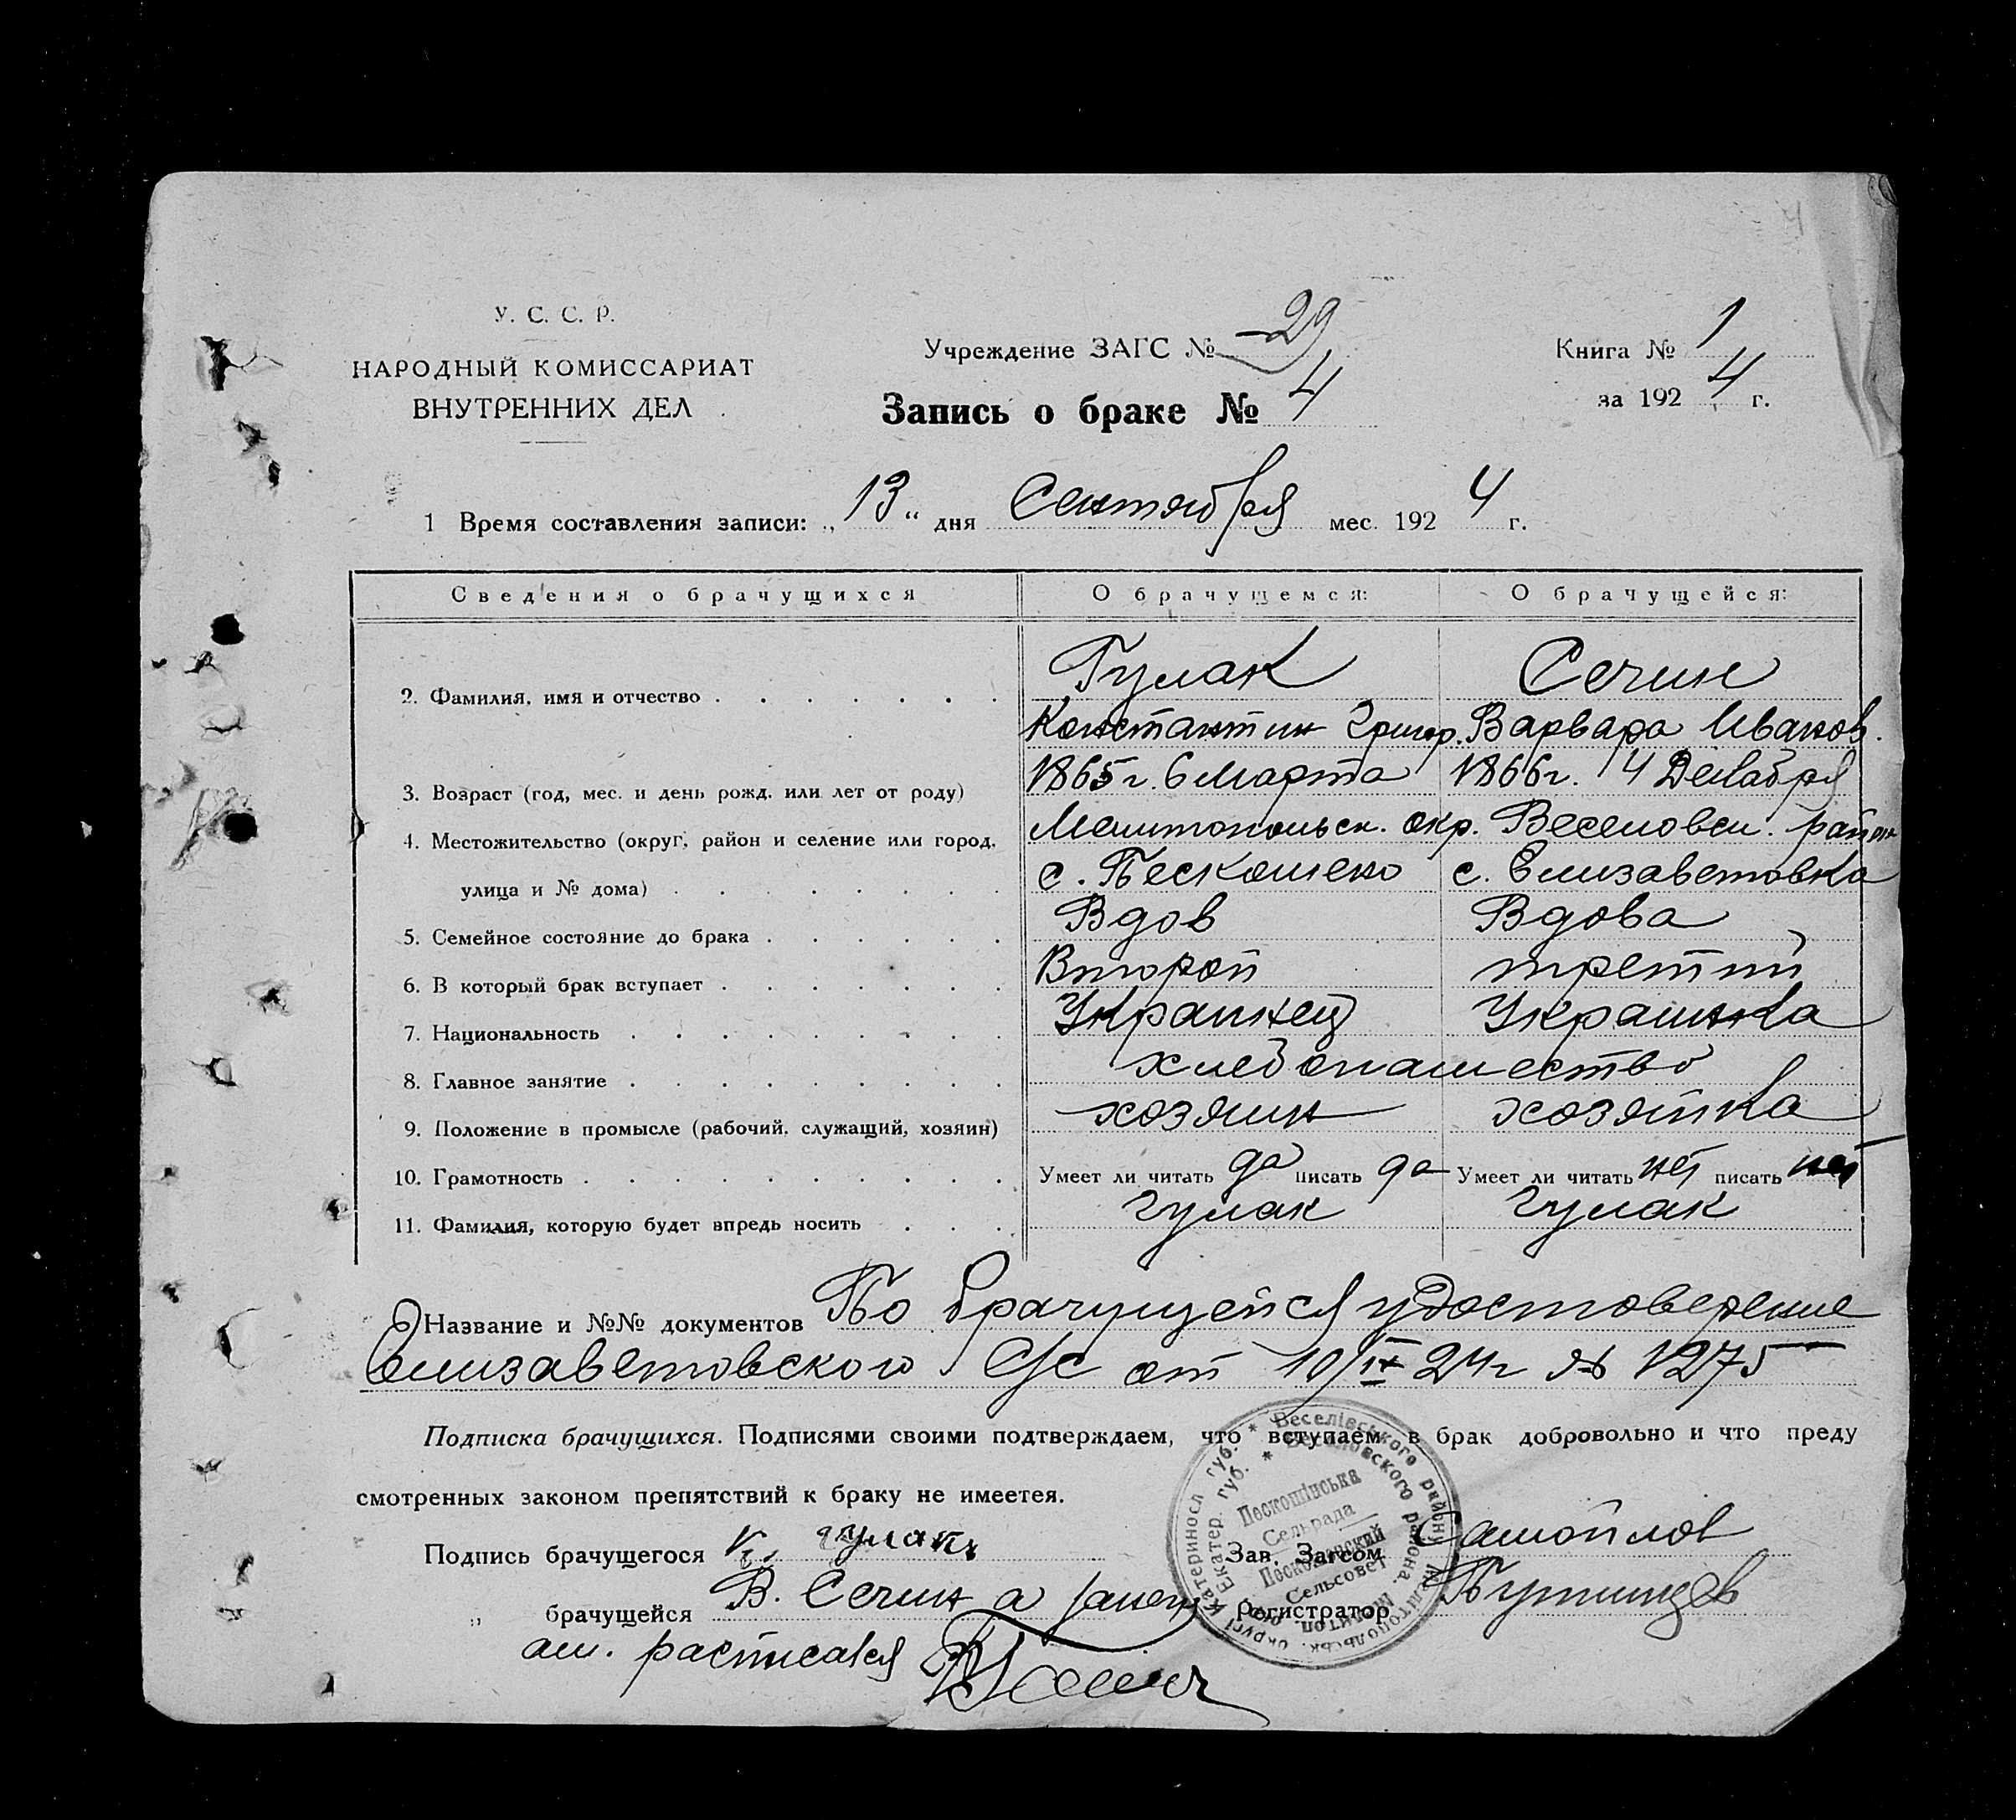 4
У. С. С. Р.
НАРОДНЫЙ КОМИССАРИАТ
ВНУТРЕННИХ ДЕЛ
Учреждение ЗАГС № 29
Запись о браке № 4
Книга № 1
за 1924 г.
1 Время составления записи: „13“ дня Сентября мес. 1924 г.
Сведения о брачущихся О брачущемся: О брачущейся:
2. Фамилия, имя и отчество Гулак Сечин
Константин Григор. Варвара Иванов.
3. Возраст (год, мес. и день рожд. или лет от роду) 1865 г. 6 Марта 1866 г. 4 Декабря
4. Местожительство (округ, район и селение или город, Мелитопольск. окр. Веселовск. район
улица и № дома) с. Пескошено с. Елизаветовка
5. Семейное состояние до брака Вдов Вдова
6. В который брак вступает Второй третий
7. Национальность Украинец Украинка
8. Главное занятие хлебопашество
9. Положение в промысле (рабочий, служащий, хозяин) хозяин хозяйка
10. Грамотность Умеет ли читать да писать да Умеет ли читать нет писать нет
11. Фамилия, которую будет впредь носить Гулак Гулак
Название и №№ документов По брачущейся удостоверение
Елизаветовского С/с от 10/IX 24 г № 1275
Подписка брачущихся. Подписями своими подтверждаем, что вступаем в брак добровольно и что преду
смотренных законом препятствий к браку не имеетея.
Подпись брачущегося К. Гулак Зав. Загсом Самойлов
„ брачущейся В. Сечин а за Регистратор
расписался
Катериносл. губ. * Веселівського району Мелітопольськ. округі
Екатер. губ. * Веселовского района. Мелитоп. окр.
Пескошінська
Сельрада
Пескошинский
Сельсовет